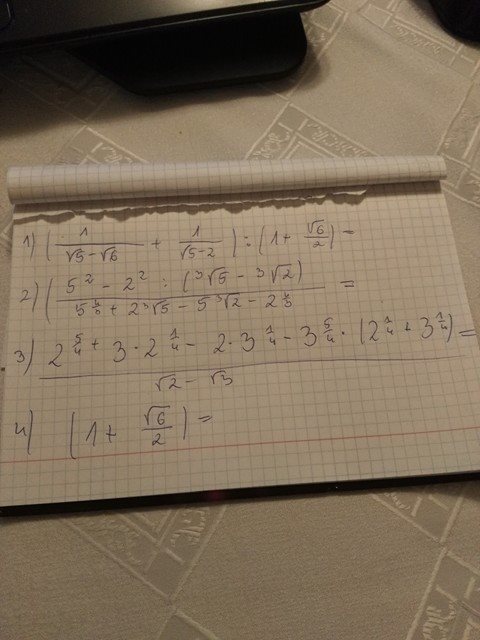 1) ( \frac{1}{\sqrt{5}-\sqrt{6}} + \frac{1}{\sqrt{5}-2} ) : ( 1 + \frac{\sqrt{6}}{2} ) =
2) ( \frac{5^{2} - 2^{2} : ( ^{3}\sqrt{5} - ^{3}\sqrt{2} )}{5^{\frac{4}{3}} + 2 ^{3}\sqrt{5} - 5 ^{3}\sqrt{2} - 2^{\frac{4}{3}}} =
3) \frac{2^{\frac{5}{4}} + 3 \cdot 2^{\frac{1}{4}} - 2 \cdot 3^{\frac{1}{4}} - 3^{\frac{5}{4}} \cdot ( 2^{\frac{1}{4}} + 3^{\frac{1}{4}} )}{\sqrt{2} - \sqrt{3}} =
4) ( 1 + \frac{\sqrt{6}}{2} ) =